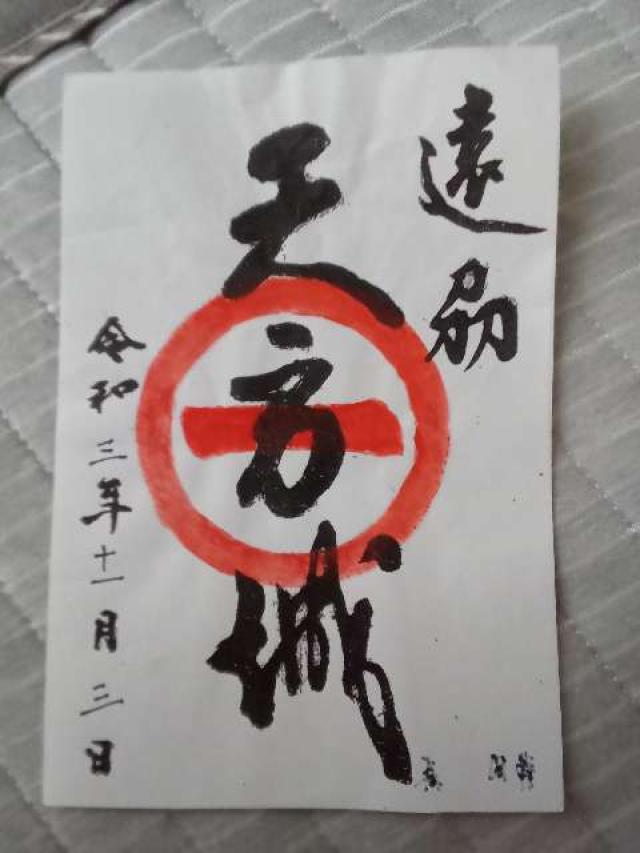 遠刕
天方城
令和三年十一月三日